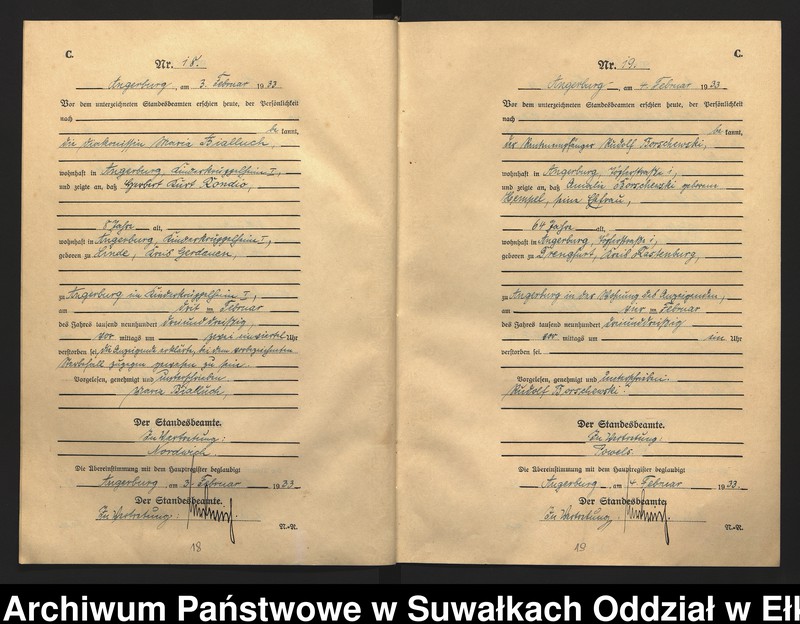 C.
Nr. 18.
Angerburg, am 3. Februar 1933
Vor dem unterzeichneten Standesbeamten erschien heute, der Persönlichkeit
nach
be kannt,
die Diakonissin Maria Bialluch,
wohnhaft in Angerburg, Kinderkrüppelheim I,
und zeigte an, daß Gerbert Kurt Kondio,
8 Jahre alt,
wohnhaft in Angerburg, Kinderkrüppelheim I,
geboren zu Linde, Kreis Gerdauen,
zu Angerburg im Kinderkrüppelheim I,
am drei ten Februar
des Jahres tausend neunhundert dreiunddreißig
vor mittags um Uhr
verstorben sei, die Anzeigende erklärte, bei dem vorbezeichneten
Sterbefall zugegen gewesen zu sein.
Vorgelesen, genehmigt und unterschrieben.
Maria Bialluch,
Der Standesbeamte.
In Vertretung:
Nordwich.
Die Übereinstimmung mit dem Hauptregister beglaubigt
Angerburg, am 3. Februar 1933.
Der Standesbeamte.
In Vertretung:
N.-R.
18
C.
Nr. 19.
Angerburg, am 4. Februar 1933
Vor dem unterzeichneten Standesbeamten erschien heute, der Persönlichkeit
nach
be kannt,
der Rentenempfänger Rudolf Borschewski,
wohnhaft in Angerburg, Töpferstraße 1,
und zeigte an, daß Amalie Borschewski geborene
Hempel, seine Ehefrau,
64 Jahre alt,
wohnhaft in Angerburg, Töpferstraße 1,
geboren zu Drengfurt, Kreis Rastenburg,
zu Angerburg in der Wohnung des Anzeigenden,
am vier ten Februar
des Jahres tausend neunhundert dreiunddreißig
vor mittags um ein Uhr
verstorben sei.
Vorgelesen, genehmigt und unterschrieben.
Rudolf Borschewski.
Der Standesbeamte.
In Vertretung:
Powels.
Die Übereinstimmung mit dem Hauptregister beglaubigt
Angerburg, am 4 Februar 1933.
Der Standesbeamte
In Vertretung:
N.-R.
19
Archiwum Państwowe w Suwałkach Oddział w Ełk